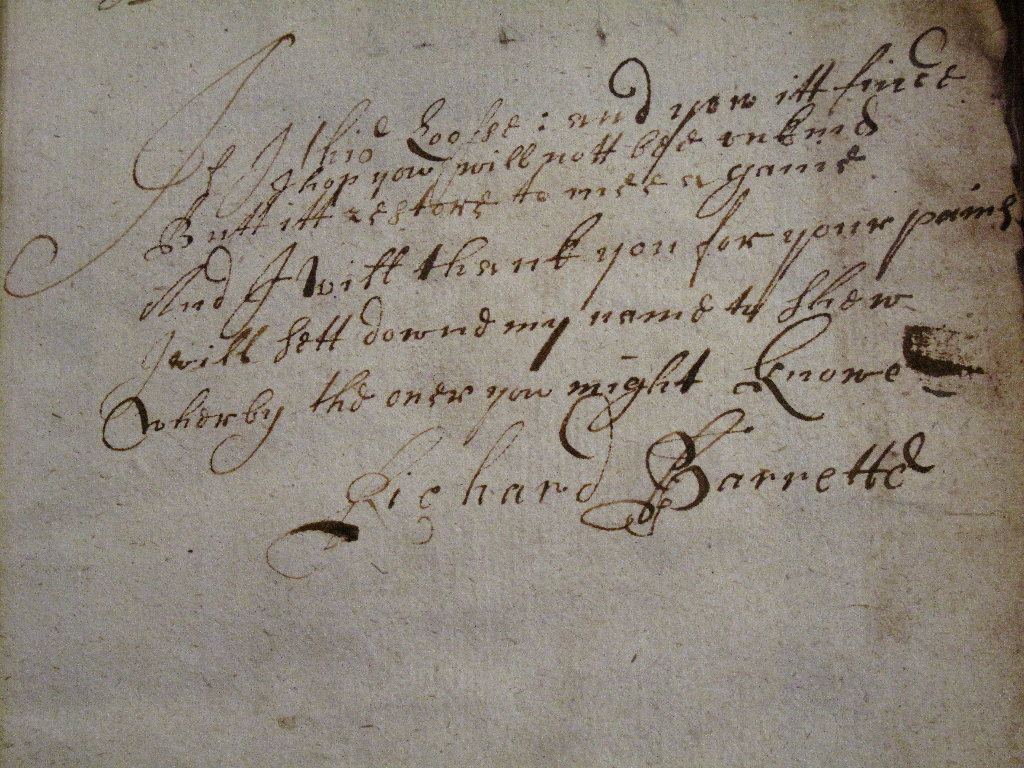 If I this Loose : and yow itt finde
I hop yow will nott bee unkind
Butt itt restore to mee a game
And I will thank you for your pains
I will sett downe my name to shew
Wherby the oner you might knowe
Richard Barrette